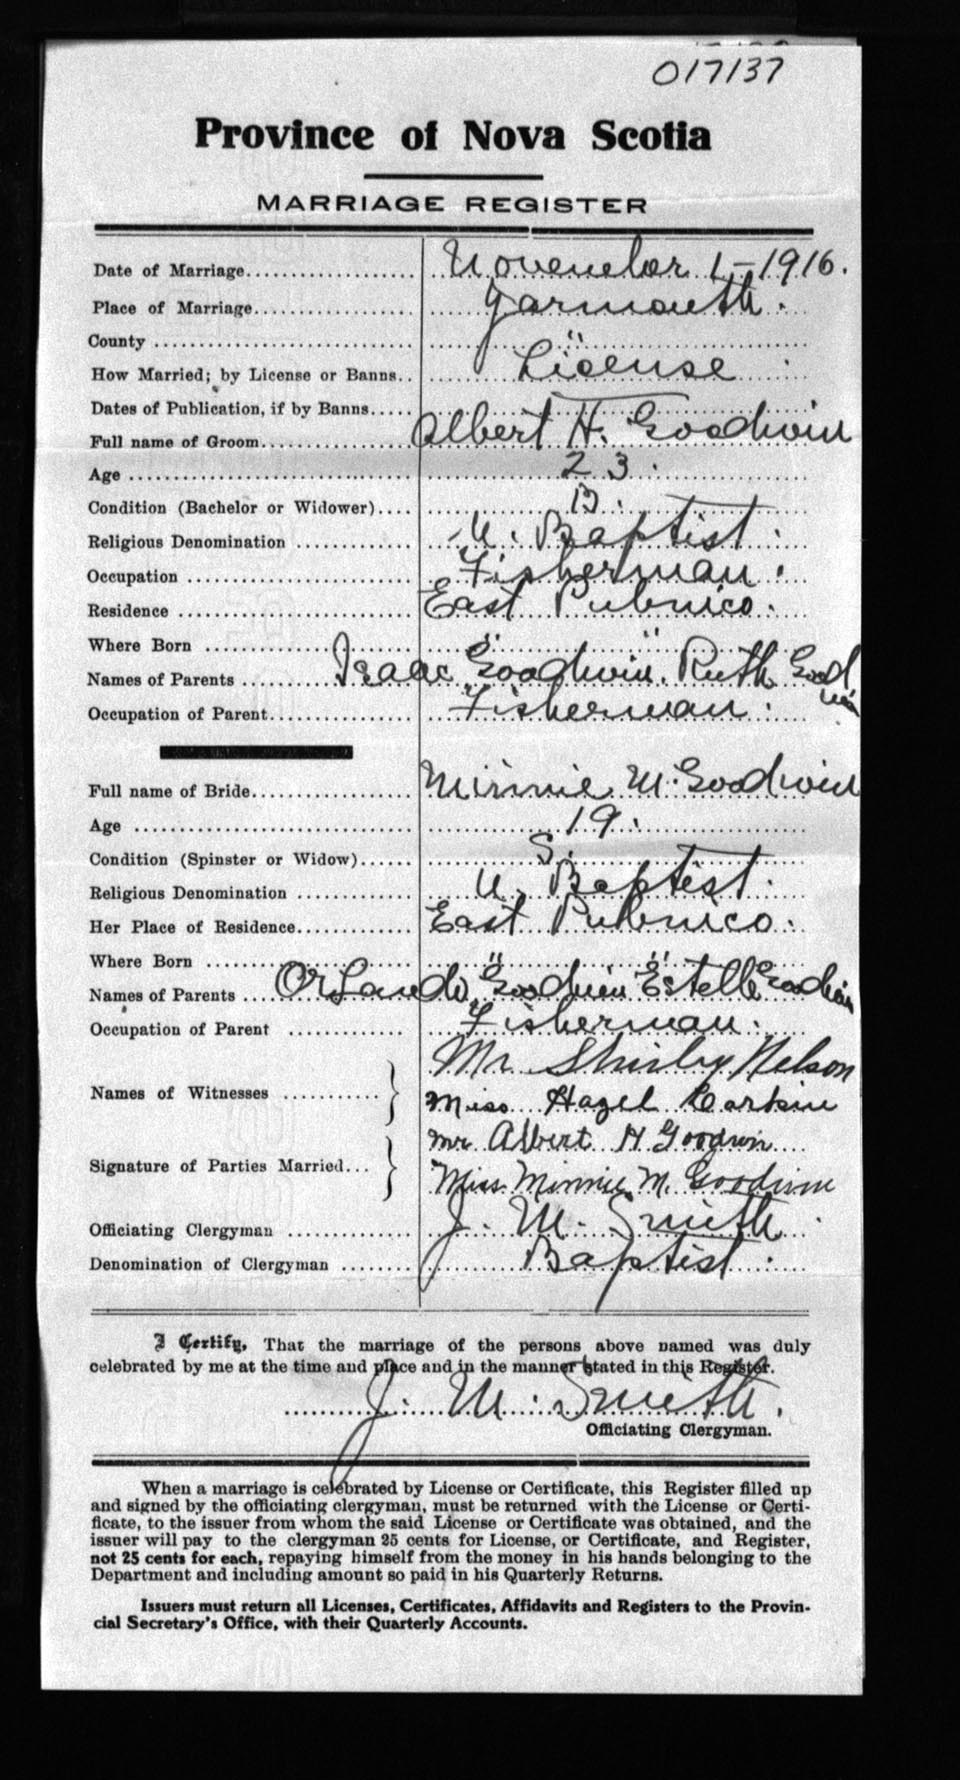 017137
Province of Nova Scotia
MARRIAGE REGISTER
Date of Marriage.................... November 1 - 1916.
Place of Marriage.................... Yarmouth.
County .................... " "
How Married; by License or Banns.. License
Dates of Publication, if by Banns.....
Full name of Groom.................... Albert H. Goodwin
Age .................... 23.
Condition (Bachelor or Widower).... B.
Religious Denomination .................... U. Baptist.
Occupation .................... Fisherman.
Residence .................... East Pubnico.
Where Born .................... " "
Names of Parents .......... Isaac Goodwin. Ruth Goodwin
Occupation of Parent.................... Fisherman.
Full name of Bride.................... Minnie M. Goodwin
Age .................... 19.
Condition (Spinster or Widow)...... S.
Religious Denomination .................... U. Baptist.
Her Place of Residence............... East Pubnico.
Where Born .................... " "
Names of Parents .... Orlando Goodwin Estelle Goodwin
Occupation of Parent .................... Fisherman.
Mr. Shirley Nelson
Names of Witnesses ............
Miss Hazel Larkin
Mr Albert H Goodwin
Signature of Parties Married...
Miss Minnie M. Goodwin
Officiating Clergyman .................... J. M. Smith.
Denomination of Clergyman ........ Baptist.
I Certify, That the marriage of the persons above named was duly
celebrated by me at the time and place and in the manner stated in this Register.
J. M. Smith.
Officiating Clergyman.
When a marriage is celebrated by License or Certificate, this Register filled up
and signed by the officiating clergyman, must be returned with the License or Certi-
ficate, to the issuer from whom the said License or Certificate was obtained, and the
issuer will pay to the clergyman 25 cents for License, or Certificate, and Register,
not 25 cents for each, repaying himself from the money in his hands belonging to the
Department and including amount so paid in his Quarterly Returns.
Issuers must return all Licenses, Certificates, Affidavits and Registers to the Provin-
cial Secretary's Office, with their Quarterly Accounts.